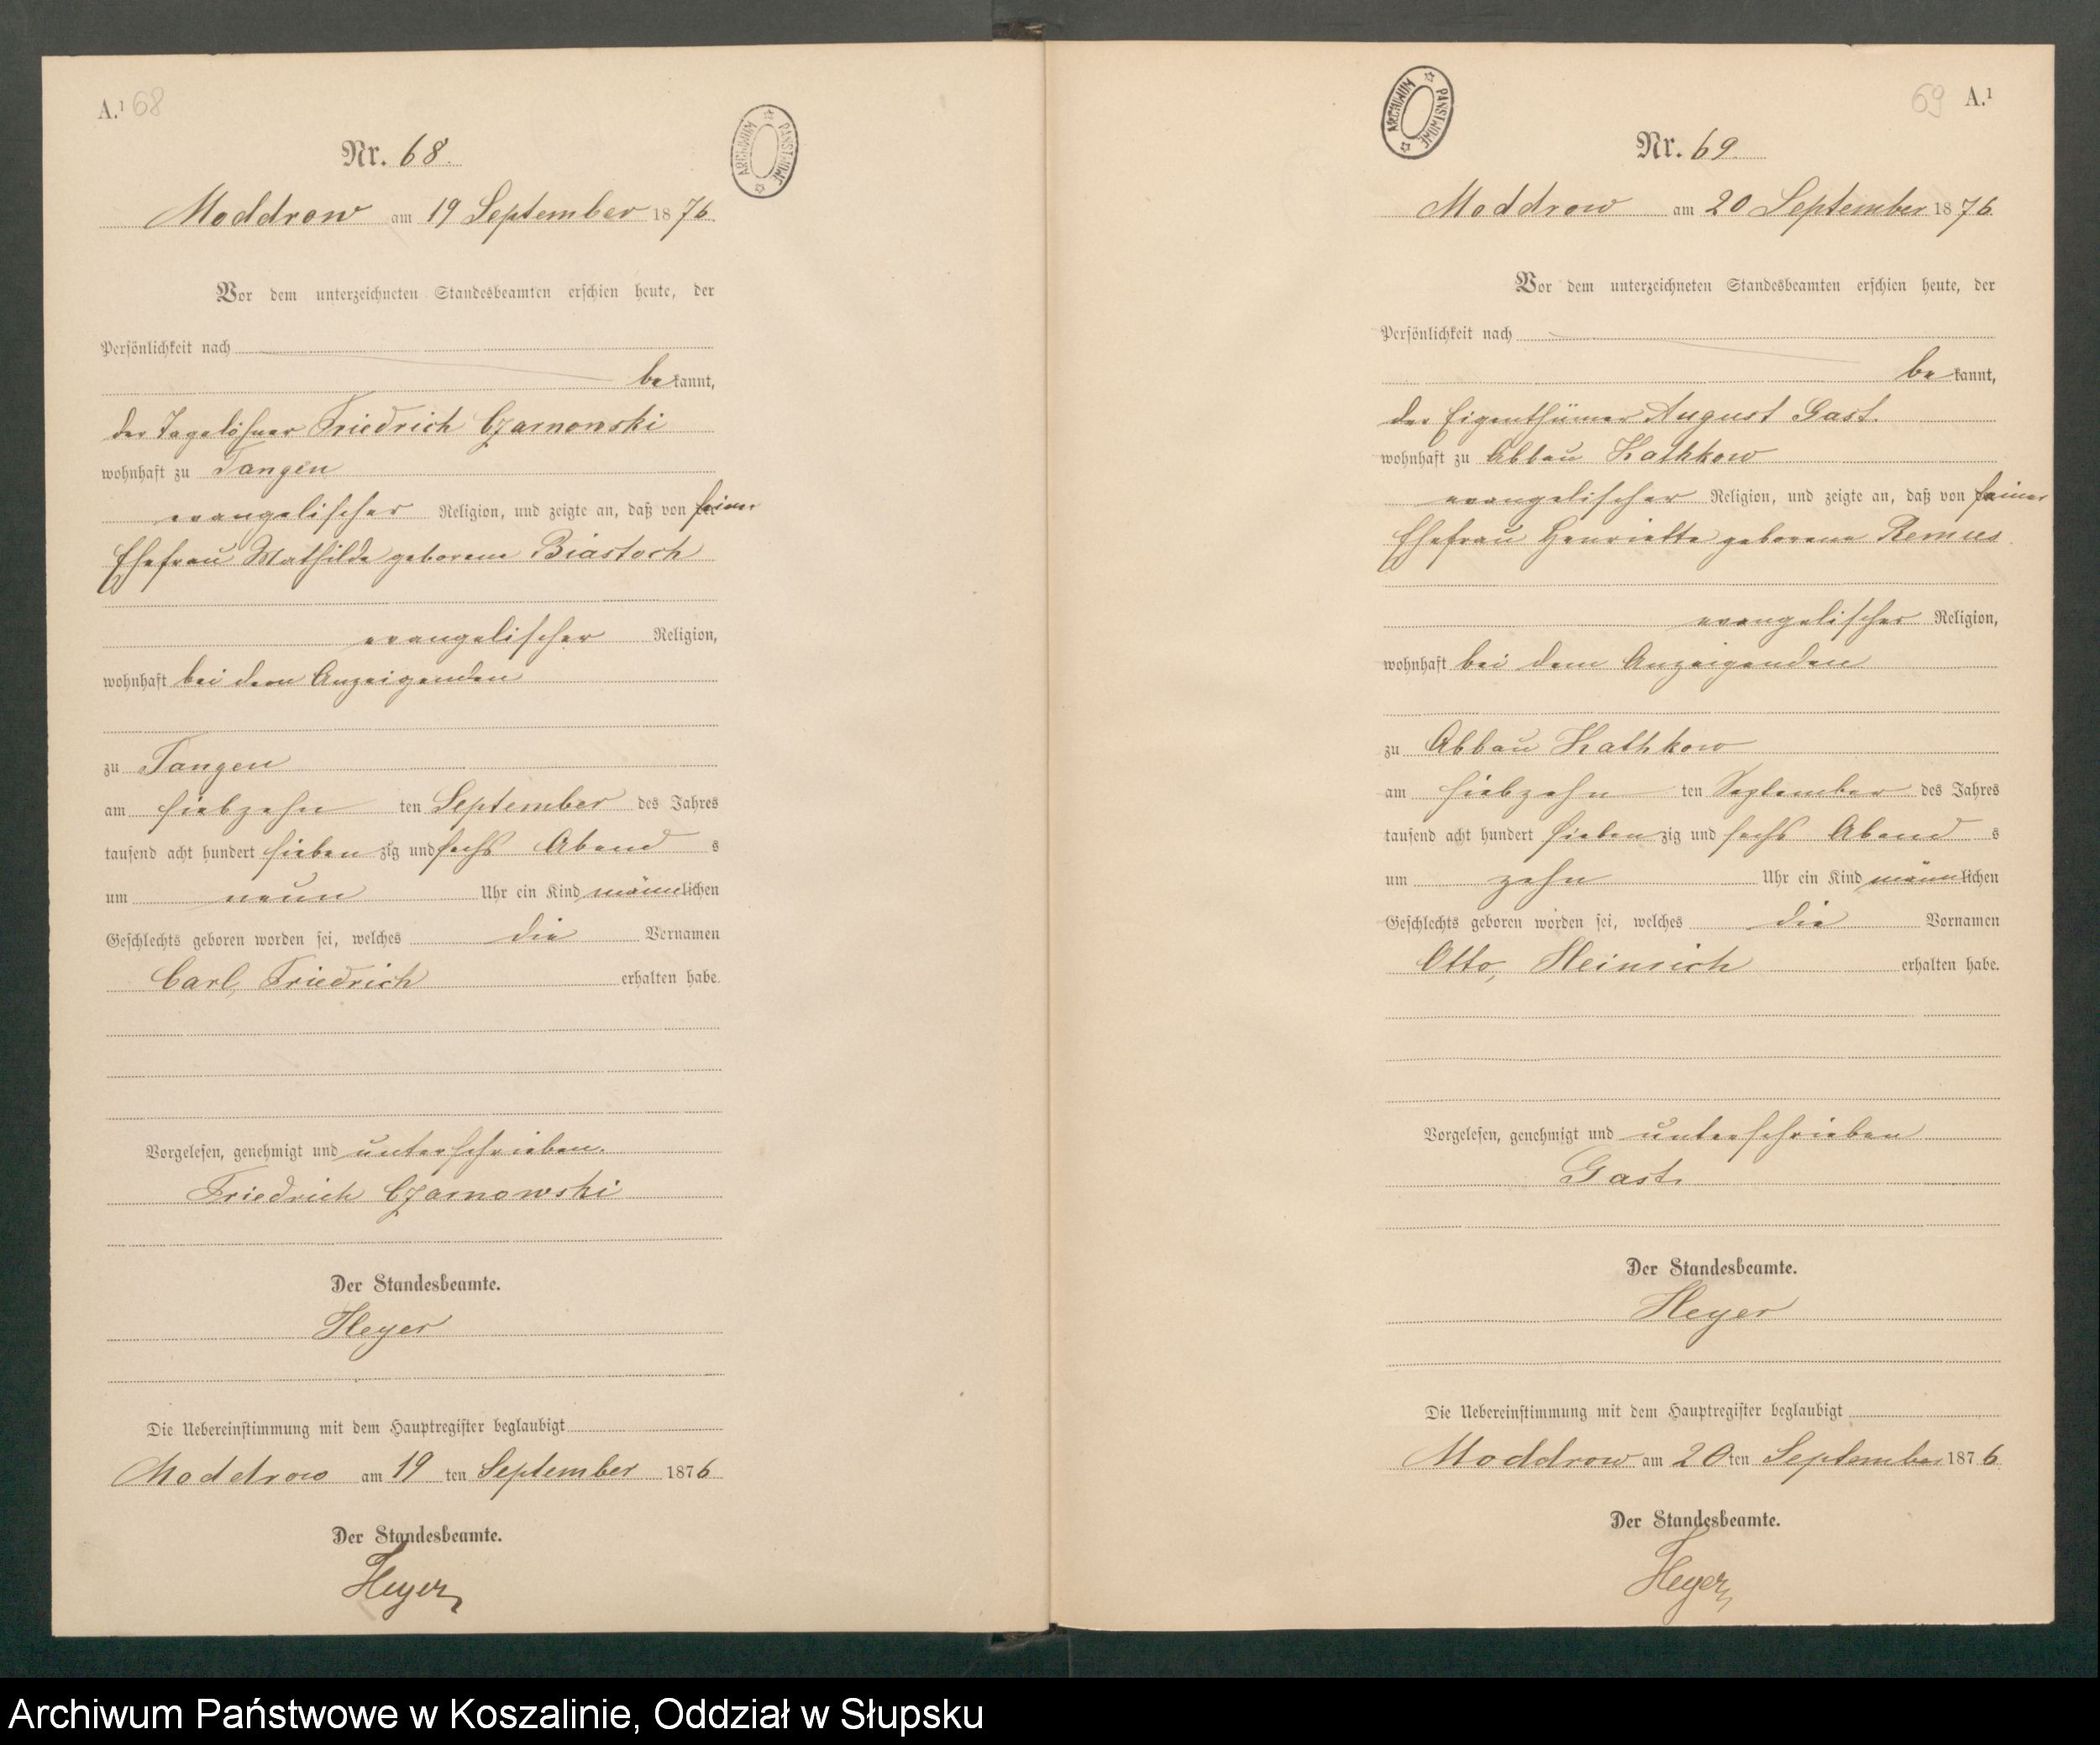 A.¹ 68
ARCHIWUM PAŃSTWOWE
Nr. 68.
Moddrow am 19 September 1876.
Vor dem unterzeichneten Standesbeamten erschien heute, der
Persönlichkeit nach
bekannt,
der Tagelöhner Friedrich Czarnowski
wohnhaft zu Tangen
evangelischer Religion, und zeigte an, daß von seiner
Ehefrau Mathilde geborene Biastoch
evangelischer Religion,
wohnhaft bei dem Anzeigenden
zu Tangen
am siebzehn ten September des Jahres
tausend acht hundert siebenzig und sechs Abends
um neun Uhr ein Kind männlichen
Geschlechts geboren worden sei, welches die Vornamen
Carl, Friedrich erhalten habe.
Vorgelesen, genehmigt und unterschrieben.
Friedrich Czarnowski
Der Standesbeamte.
Heyer
Die Uebereinstimmung mit dem Hauptregister beglaubigt
Moddrow am 19 ten September 1876
Der Standesbeamte.
Heyer
69 A.¹
ARCHIWUM PAŃSTWOWE
Nr. 69.
Moddrow am 20 September 1876.
Vor dem unterzeichneten Standesbeamten erschien heute, der
Persönlichkeit nach
bekannt,
der Eigenthümer August Gast.
wohnhaft zu Abbau Kathkow
evangelischer Religion, und zeigte an, daß von seiner
Ehefrau Henriette geborene Remus
evangelischer Religion,
wohnhaft bei dem Anzeigenden
zu Abbau Kathkow
am siebzehn ten September des Jahres
tausend acht hundert siebenzig und sechs Abends
um zehn Uhr ein Kind männlichen
Geschlechts geboren worden sei, welches die Vornamen
Otto, Heinrich erhalten habe.
Vorgelesen, genehmigt und unterschrieben
Gast.
Der Standesbeamte.
Heyer
Die Uebereinstimmung mit dem Hauptregister beglaubigt
Moddrow am 20 ten September 1876
Der Standesbeamte.
Heyer
Archiwum Państwowe w Koszalinie, Oddział w Słupsku